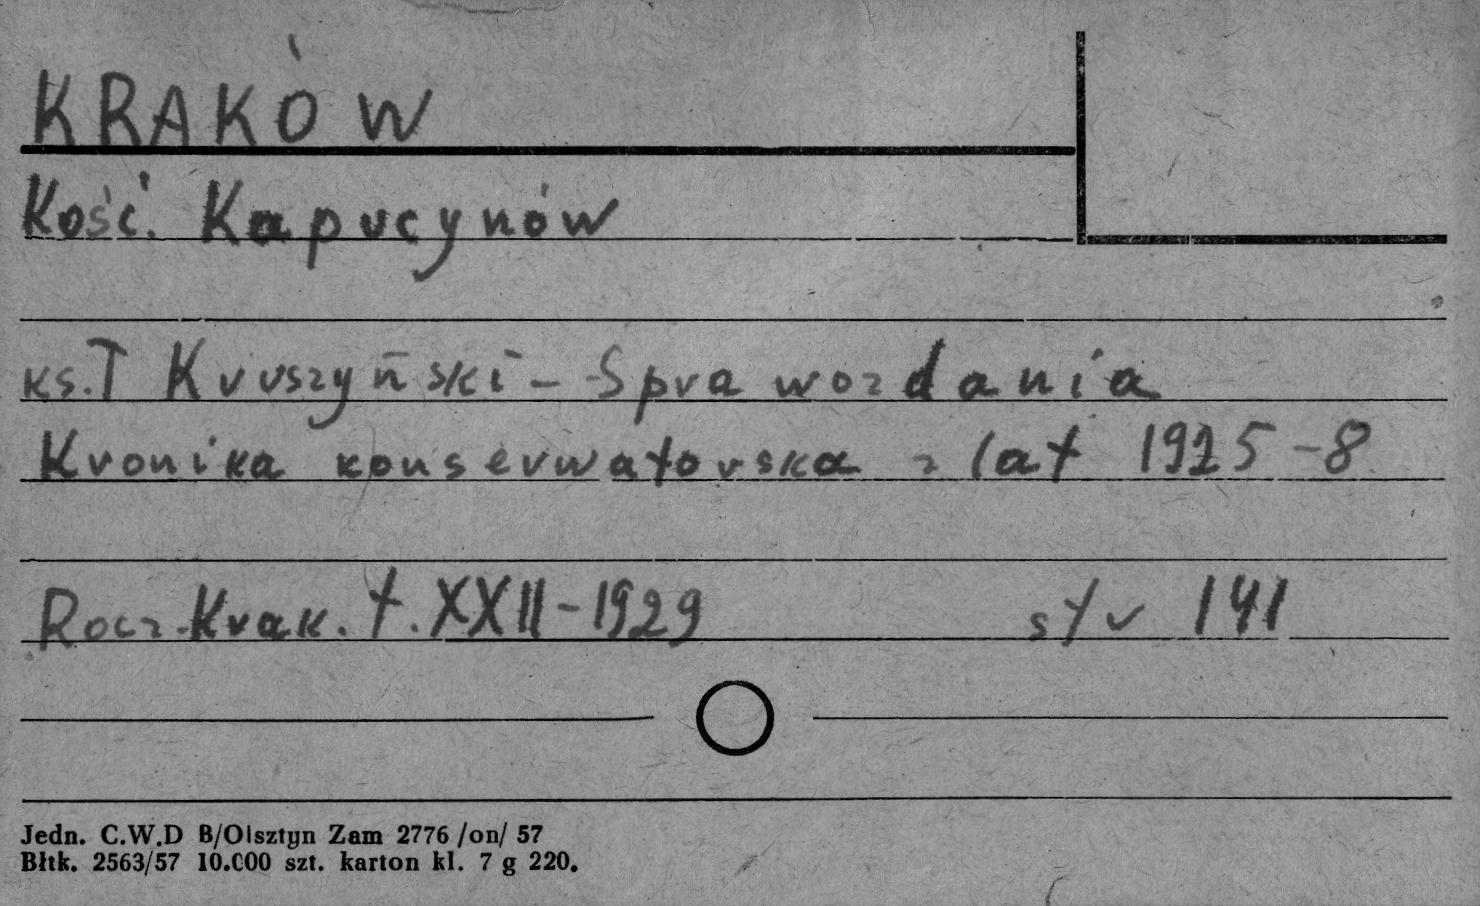 KRAKÓW
Kość. Kapucynów
ks. T Kruszyński - Sprawozdania
Kronika konserwatorska z lat 1925-8
Rocz. Krak. t. XXII - 1929 str 141
Jedn. C.W.D B/Olsztyn Zam 2776 /on/ 57
Błtk. 2563/57 10.000 szt. karton kl. 7 g 220.